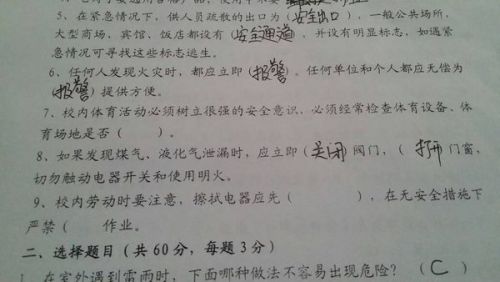 5、在紧急情况下，供人员疏散的出口为（安全出口），一般公共场所、
大型商场、宾馆、饭店都设有（安全通道，并设有明显标志，如遇紧
急情况可寻找这些标志逃生。
6、任何人发现火灾时，都应立即（报警）。任何单位和个人都应无偿为
（报警）提供方便。
7、校内体育活动必须树立很强的安全意识，必须经常检查体育设备、体
育场地是否（ ）。
8、如果发现煤气、液化气泄漏时，应立即（关闭）阀门，（打开）门窗，
切勿触动电器开关和使用明火。
9、校内劳动时要注意，擦拭电器应先（ ），在无安全措施下
严禁（ 作业。
二、选择题目（共60分，每题3分）
1、在室外遇到雷雨时，下面哪种做法不容易出现危险？（C）